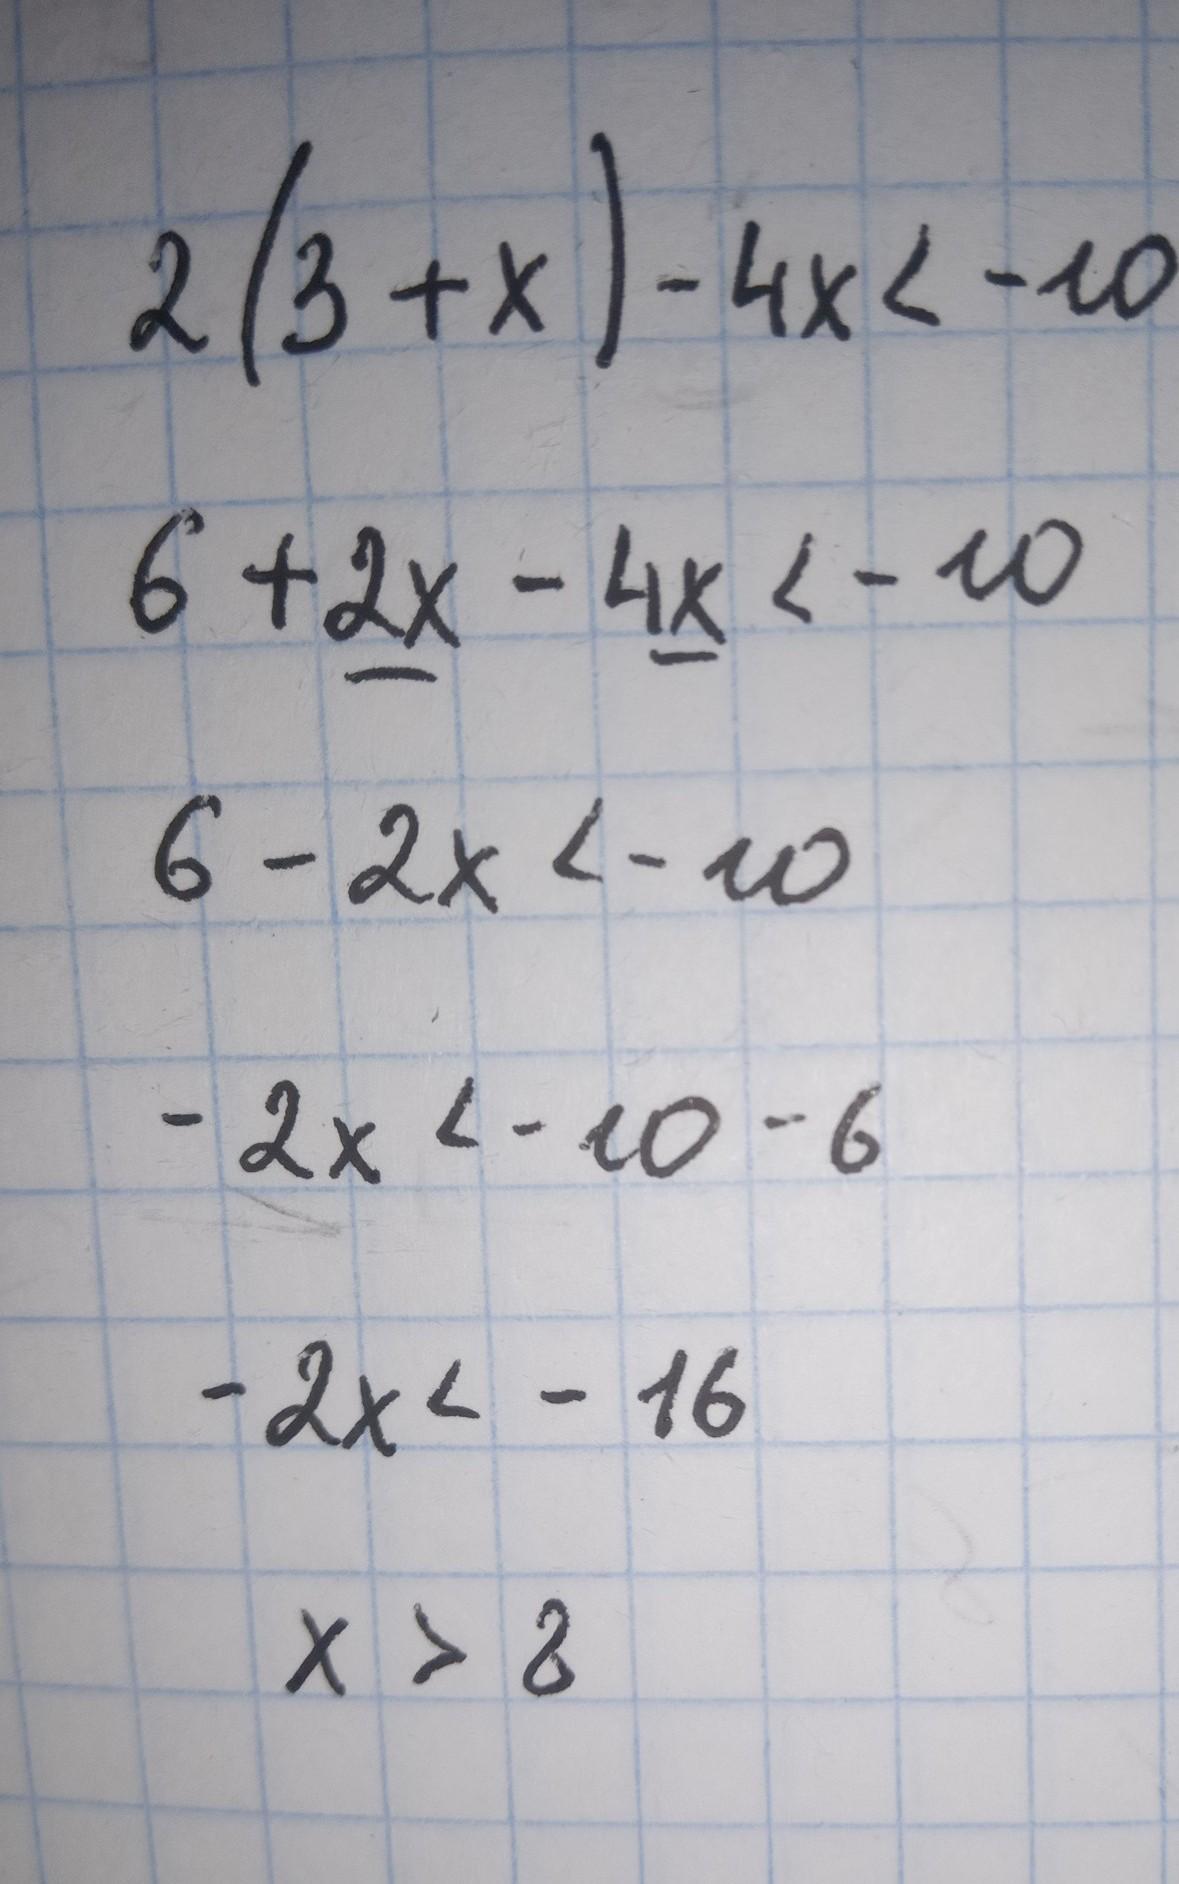 2(3+x)-4x<-10
6+2x-4x<-10
6-2x<-10
-2x<-10-6
-2x<-16
x>8